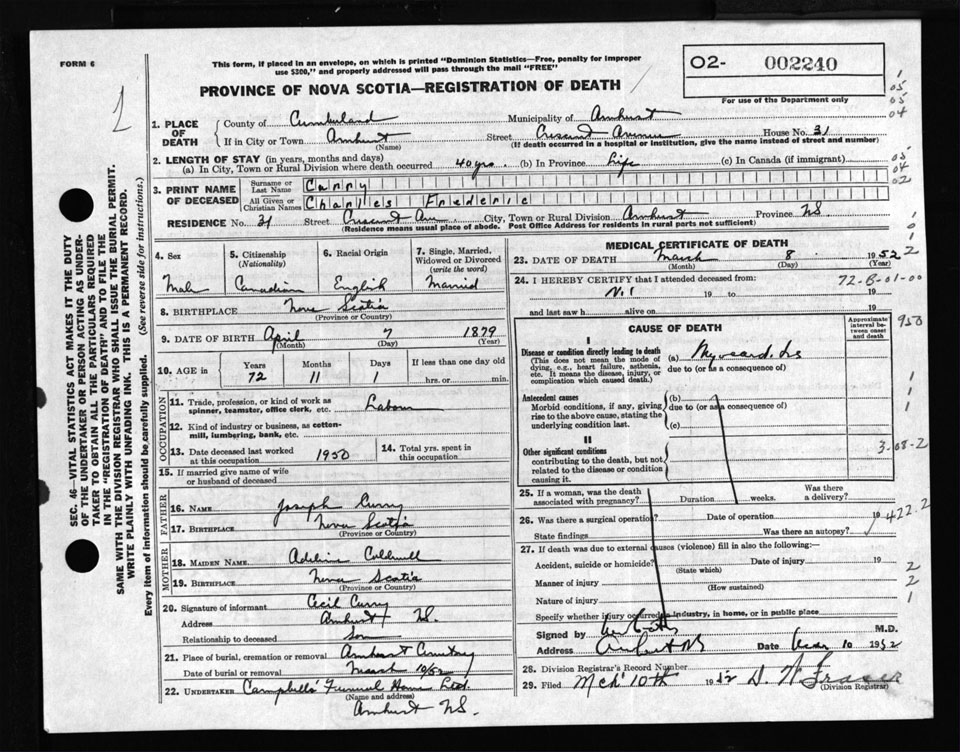 FORM 6
This form, if placed in an envelope, on which is printed "Dominion Statistics—Free, penalty for improper
use $300," and properly addressed will pass through the mail "FREE"
O2- 002240
For use of the Department only
PROVINCE OF NOVA SCOTIA—REGISTRATION OF DEATH
1. PLACE OF DEATH
County of Cumberland Municipality of Amherst
If in City or Town Amherst (Name) Street Crescent Avenue House No. 31
(If death occurred in a hospital or institution, give the name instead of street and number)
2. LENGTH OF STAY (in years, months and days)
(a) In City, Town or Rural Division where death occurred 40 yrs. (b) In Province Life (c) In Canada (if immigrant)
3. PRINT NAME OF DECEASED
Surname or Last Name Curry
All Given or Christian Names Charles Frederic
RESIDENCE No. 31 Street Crescent Ave City, Town or Rural Division Amherst Province NS
(Residence means usual place of abode. Post Office Address for residents in rural parts not sufficient)
4. Sex Male
5. Citizenship (Nationality) Canadian
6. Racial Origin English
7. Single, Married, Widowed or Divorced (write the word) Married
8. BIRTHPLACE Nova Scotia
(Province or Country)
9. DATE OF BIRTH April 7 1879
(Month) (Day) (Year)
10. AGE in Years Months Days If less than one day old
72 11 1 hrs. or min.
OCCUPATION
11. Trade, profession, or kind of work as spinner, teamster, office clerk, etc. Labour
12. Kind of industry or business, as cotton-mill, lumbering, bank, etc.
13. Date deceased last worked at this occupation 1950
14. Total yrs. spent in this occupation
15. If married give name of wife or husband of deceased
FATHER
16. NAME Joseph Curry
17. BIRTHPLACE Nova Scotia
(Province or Country)
MOTHER
18. MAIDEN NAME Adeline Coldwell
19. BIRTHPLACE Nova Scotia
(Province or Country)
20. Signature of informant Cecil Curry
Address Amherst NS.
Relationship to deceased Son
21. Place of burial, cremation or removal Amherst Cemetery
Date of burial or removal March 10/52
22. UNDERTAKER Campbells' Funeral Home Ltd.
(Name and address)
Amherst NS.
MEDICAL CERTIFICATE OF DEATH
23. DATE OF DEATH March 8 1952
(Month) (Day) (Year)
24. I HEREBY CERTIFY that I attended deceased from:
72-B-01-00
19 to 19
and last saw h alive on 19
CAUSE OF DEATH
Approximate interval between onset and death
950
I
Disease or condition directly leading to death
(This does not mean the mode of dying, e.g., heart failure, asthenia, etc. It means the disease, injury, or complication which caused death.)
(a) Myocarditis
due to (or as a consequence of)
Antecedent causes
Morbid conditions, if any, giving rise to the above cause, stating the underlying condition last.
(b)
due to (or as a consequence of)
(c)
II
Other significant conditions
contributing to the death, but not related to the disease or condition causing it.
3-08-2
25. If a woman, was the death associated with pregnancy? Duration weeks. Was there a delivery?
26. Was there a surgical operation? Date of operation 19
422.2
State findings Was there an autopsy?
27. If death was due to external causes (violence) fill in also the following:
Accident, suicide or homicide? Date of injury 19
(State which)
Manner of injury
(How sustained)
Nature of injury
Specify whether injury occurred in industry, in home, or in public place
Signed by M.D.
Address Amherst NS Date 10 1952
28. Division Registrar's Record Number
29. Filed Mch 10th 1952 D. W. Fraser
(Division Registrar)
SEC. 46—VITAL STATISTICS ACT MAKES IT THE DUTY
OF THE UNDERTAKER OR PERSON ACTING AS UNDERTAKER TO OBTAIN ALL THE PARTICULARS REQUIRED
IN THE "REGISTRATION OF DEATH" AND TO FILE THE
SAME WITH THE DIVISION REGISTRAR WHO SHALL ISSUE THE BURIAL PERMIT.
WRITE PLAINLY WITH UNFADING INK. THIS IS A PERMANENT RECORD.
Every item of information should be carefully supplied. (See reverse side for instructions.)